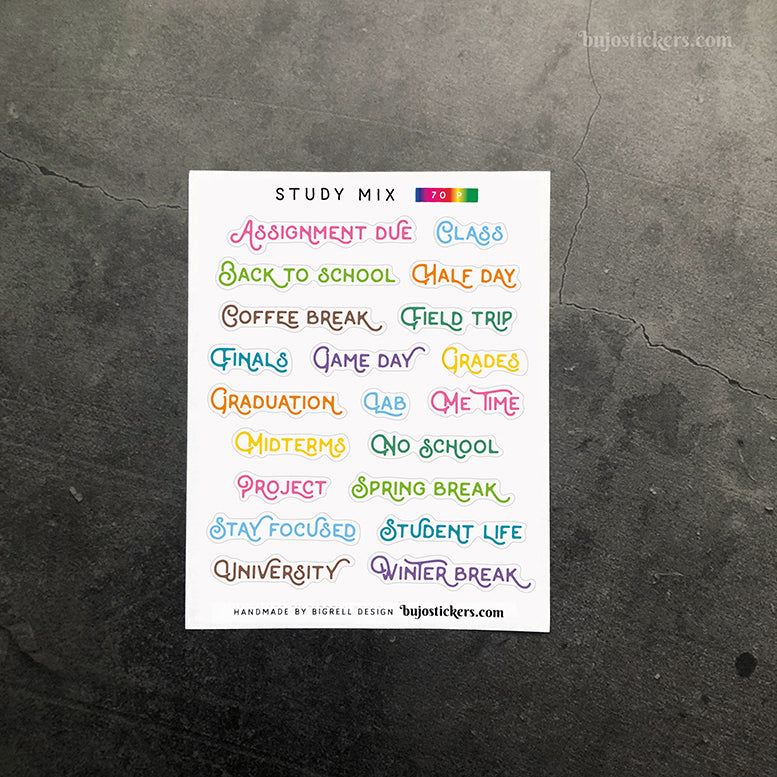 bujostickers.com
STUDY MIX 70 P
ASSIGNMENT DUE CLASS
BACK TO SCHOOL HALF DAY
COFFEE BREAK FIELD TRIP
FINALS GAME DAY GRADES
GRADUATION LAB ME TIME
MIDTERMS NO SCHOOL
PROJECT SPRING BREAK
STAY FOCUSED STUDENT LIFE
UNIVERSITY WINTER BREAK
HANDMADE BY BIGRELL DESIGN bujostickers.com